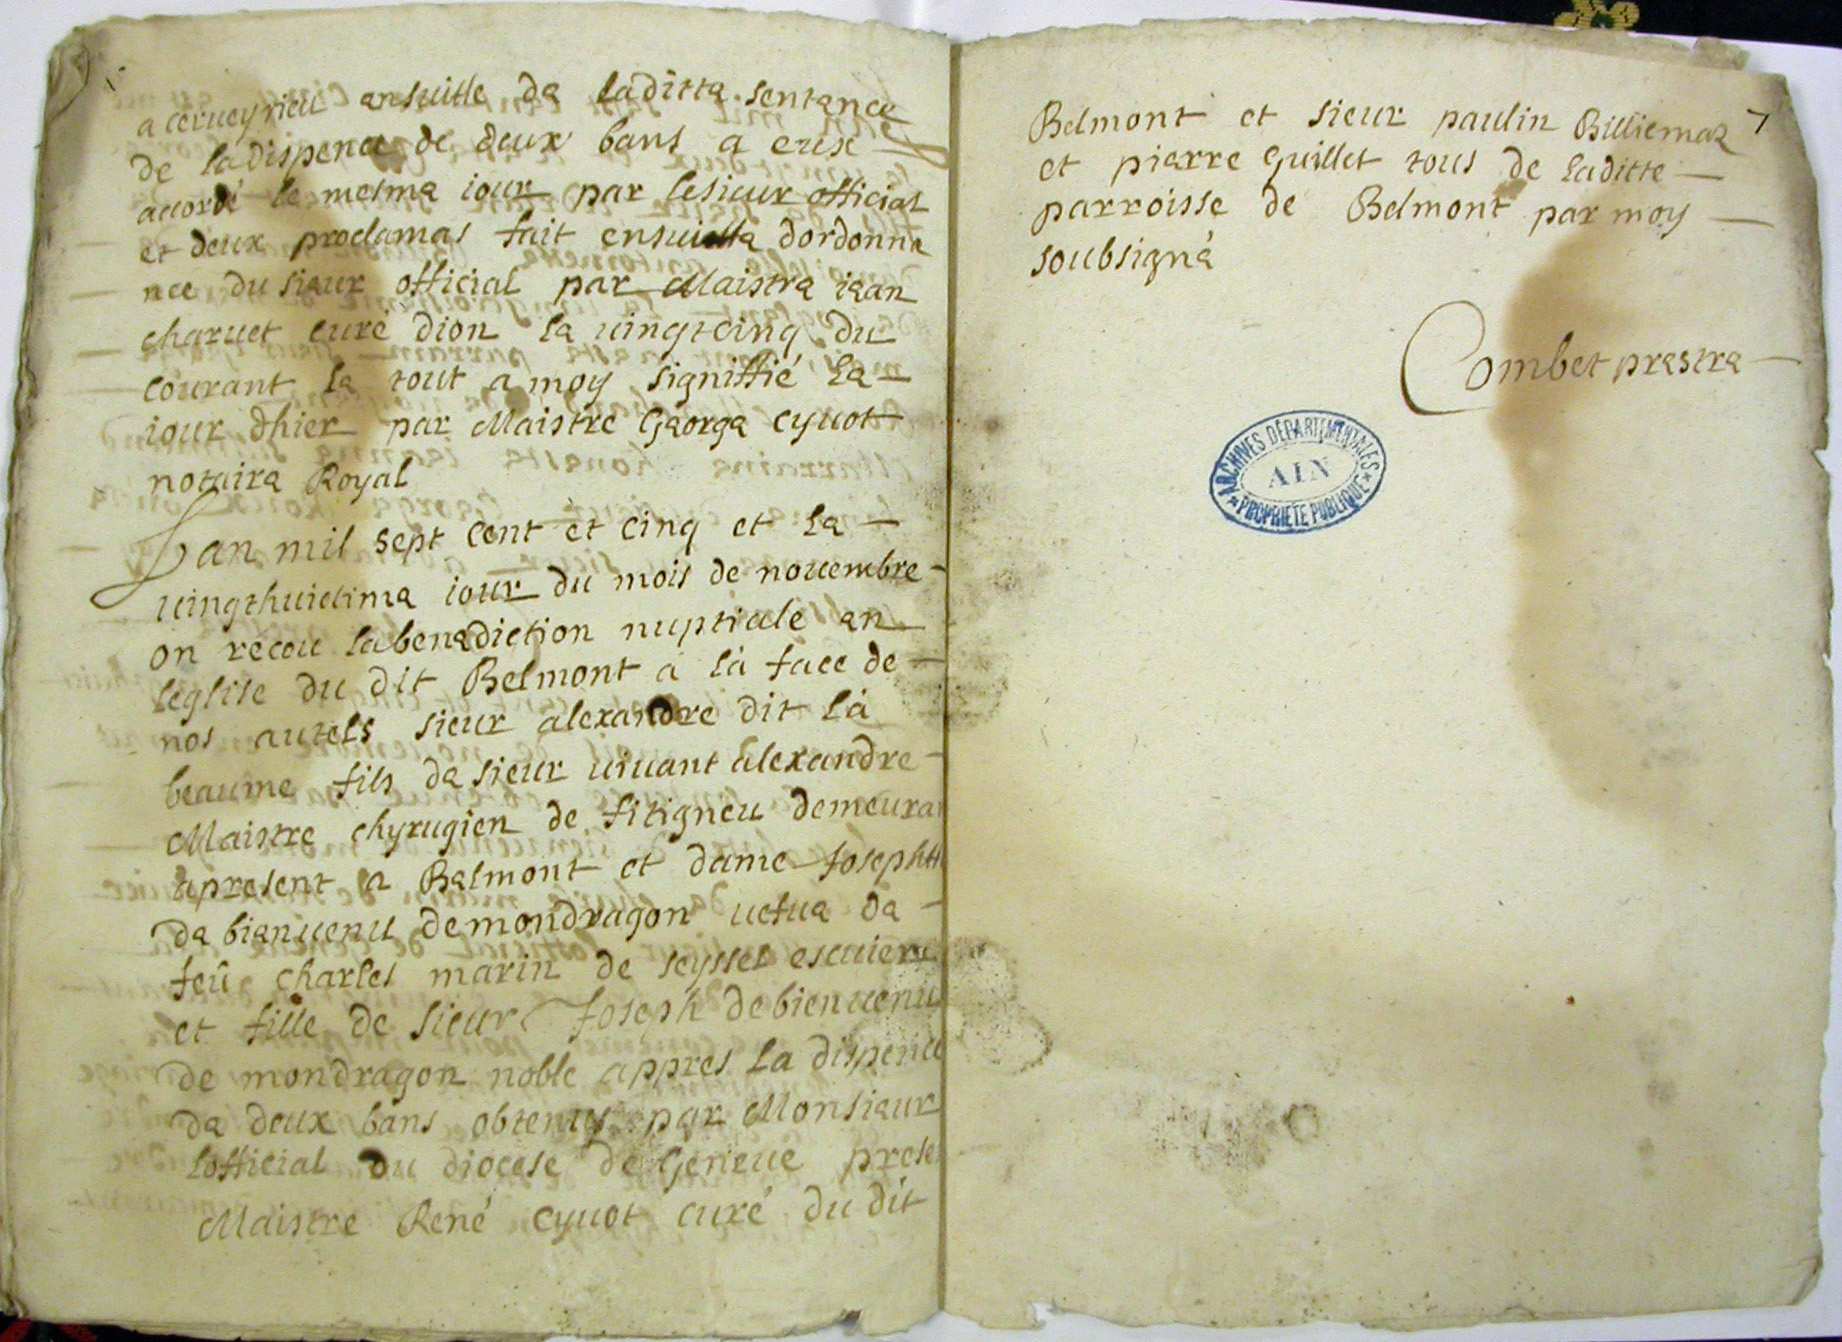 a cerueyrieu ansuitte da laditta sentance
de ladispence de deux bans a eux
accordé le mesma iour par lesieur official
et deux proclamas fait ensuitta dordonna
nce du sieur official par Maistra iaan
charuet curé dion la uingtcinq du
courant la tout a moy signiffié la
iour dhier par Maistre Georga cyuot
notaira Royal
Lan mil sept cent et cinq et la
uingthuictima iour du mois de nouembre
on recou labenadiction nuptiale an
leglise du dit Belmont a la face de
nos autels sieur alexandre dit la
beaume fils da sieur uiuant alexandre
Maistre chyrugien de fitigneu demeuran
apresent a Balmont et dame Josephte
da bianuenu demondragon uefua da
feû charles marin de seyssel escuier
et fille de sieur Joseph debienuenu
de mondragon noble appres la dispence
da deux bans obtenus par Monsiaur
lofficial du diocese de Geneue prese
Maistre René cyuot curé du dit
7
Belmont et sieur paulin Billiemaz
et piarre Guillet tous de laditte
parroisse de Belmont par moy
soubsigna
Combet prastra
ARCHIVES DÉPARTEMENTALES
AIN
PROPRIÉTÉ PUBLIQUE